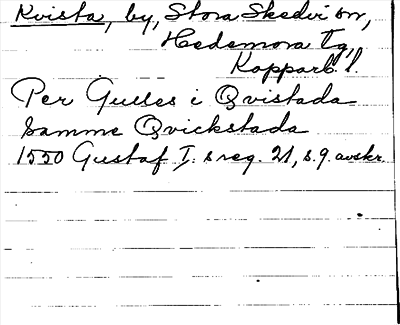 Kvista, by, Stora Skedvi sn,
Hedemora tg,
Kopparb. l.
Per Gulles i Qvistada
Samme Qvickstada
1550 Gustaf I. s reg. 21, s. 9. avskr.